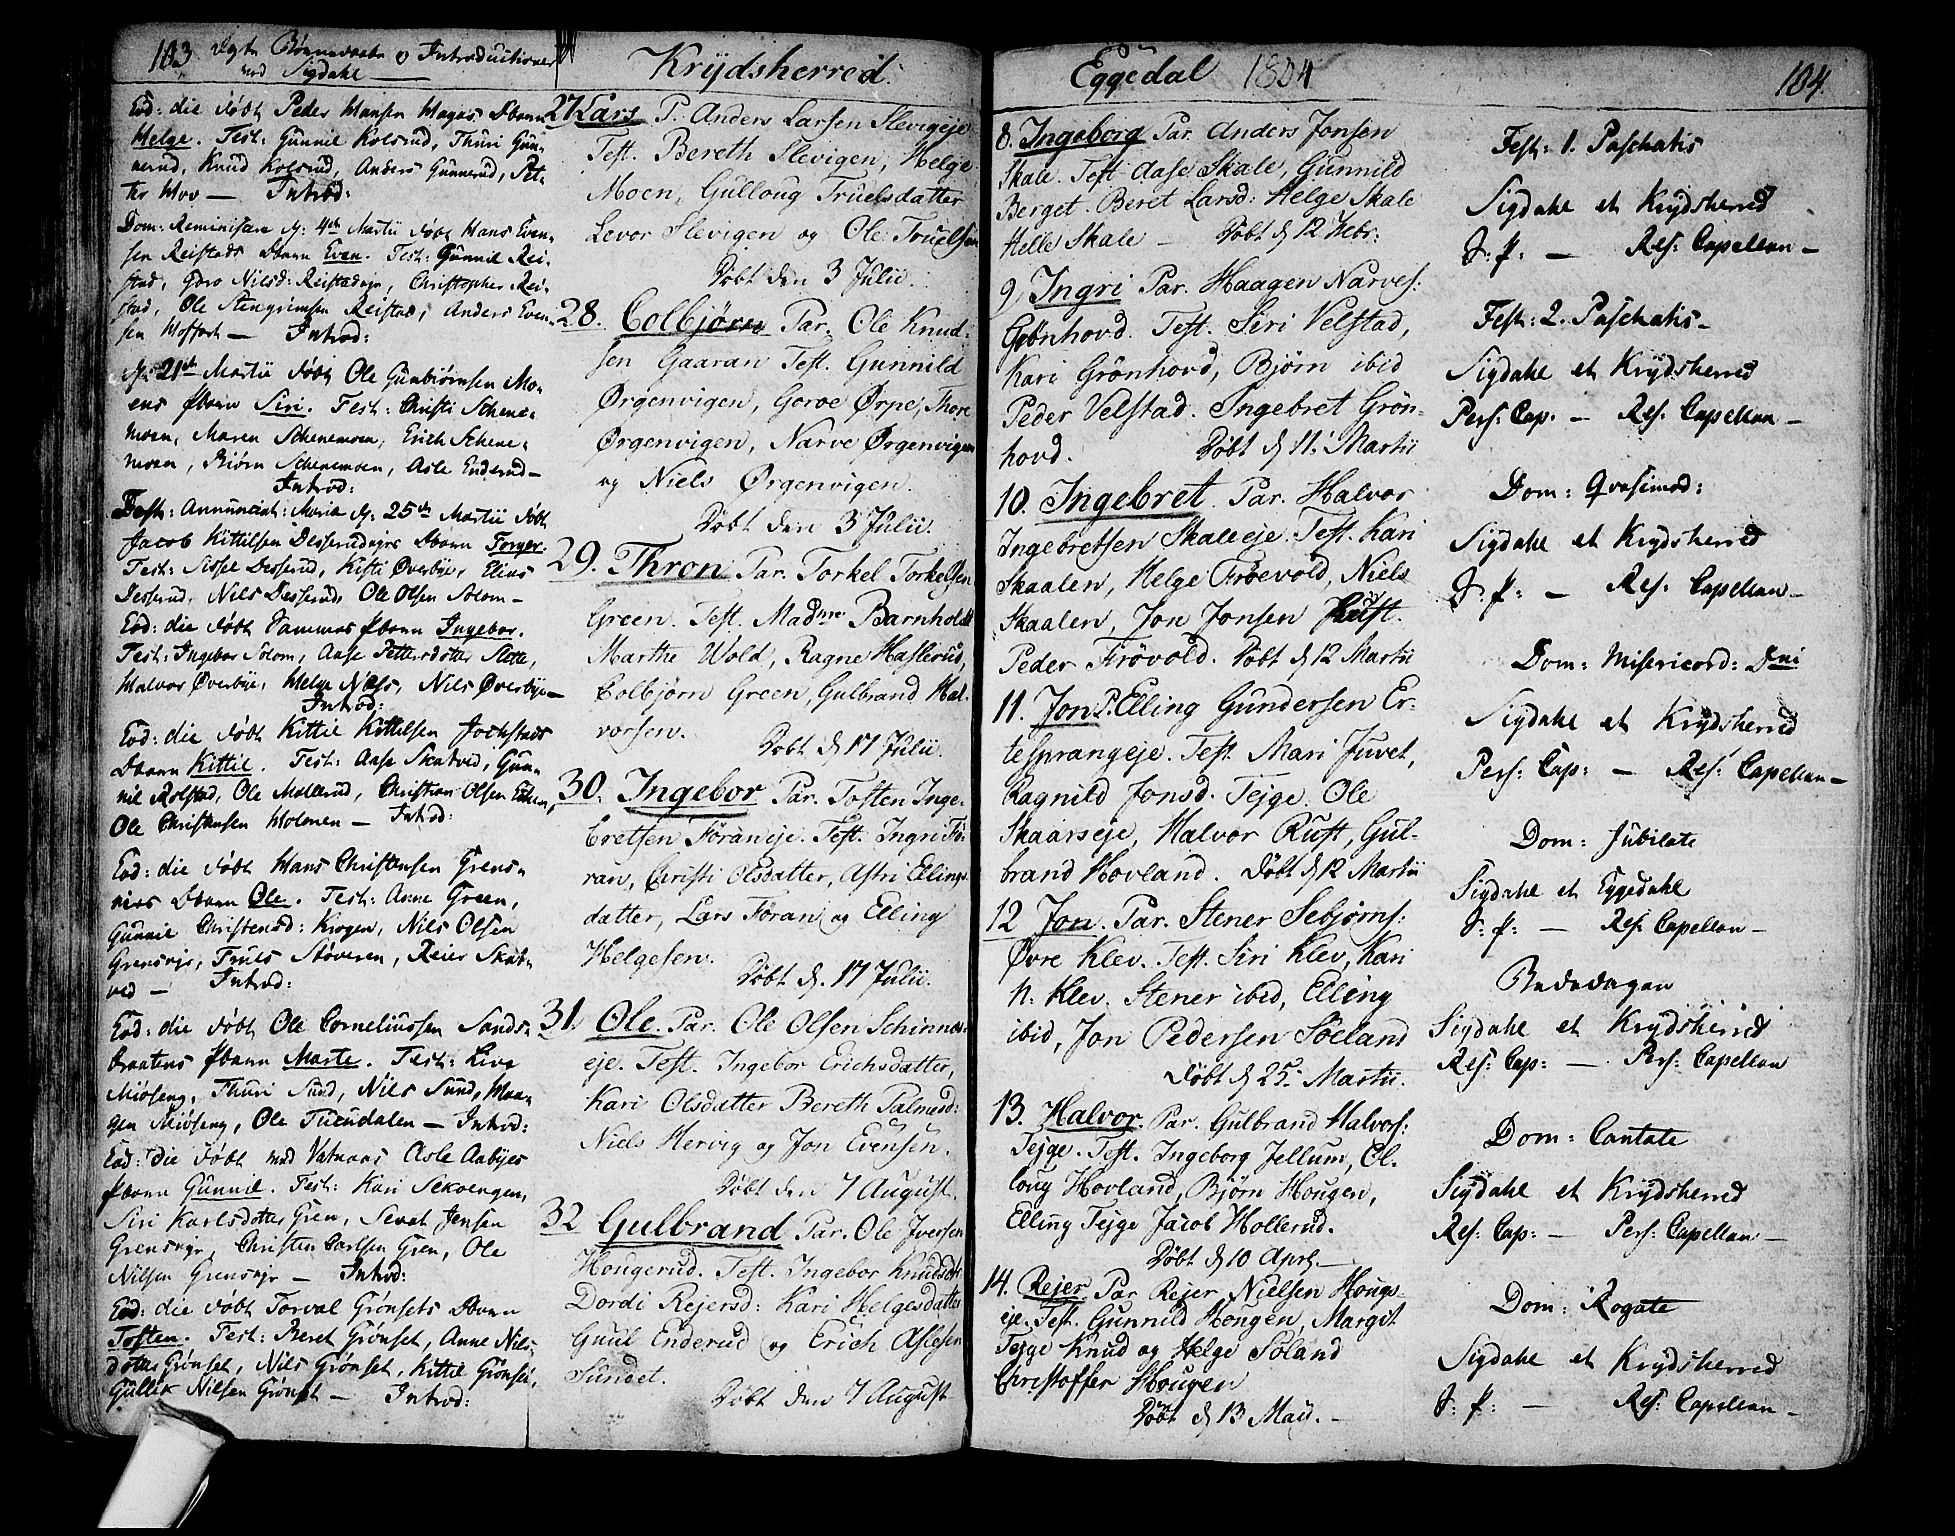 103 Ægte Børnedaab o Introductioner
ved Sigdahl —
Eod: die døbt Peder Hansen Hagas Dbarn
Helge. Test: Gunnil Kolsrud, Thuri Gun-
nerud, Knud Kolsrud, Anders Gunnerud, Pet-
ter Mov — Introd:
Dom: Reminiscere d: 4de Martii døbt Hans Even-
sen Reistads Dbarn Even. Test: Gunnil Rei-
stad, Goro Nilsd: Reistadeje, Christopher Rei-
stad, Ole Stengrimsen Reistad, Anders Even-
sen Hoffart — Introd:
d: 21de Martii døbt Ole Gunbiørnsen Mo-
ens Pbarn Siri. Test: Christi Schene-
moen, Maren Schenemoen, Erich Schene-
moen, Biørn Schenemoen, Asle Enderud —
Introd:
Fest: Annunciat: Mariæ d: 25de Martii døbt
Jacob Kittilsen Desserudejes Dbarn Torger.
Test: Sissel Desserud, Kisti Øverbye, Elias
Desserud, Nils Desserud, Ole Olsen Solom —
Eod: die døbt Tammas Pbarn Ingebor.
Test: Ingebor Solom, Aase Pettersdotter Slette,
Halvor Øverbye, Helge Næss, Nils Øverbye —
Introd:
Eod: die døbt Kittil Kittilsen Jochstads
Dbarn Kittil. Test: Aase Skatved, Gun-
nil Rolstad, Ole Mollerud, Christian Olsen Eken,
Ole Christensen Holmen — Introd:
Eod: die døbt Hans Christensen Grens-
ejes Dbarn Ole. Test: Anne Green,
Gunnil Christensd: Krogen, Nils Olsen
Grenseje, Truls Støveren, Reier Skat-
ved — Introd:
Eod: die døbt Ole Corneliussen Sands-
braatens Pbarn Marte. Test: Live
Miøseng, Thuri Sund, Nils Sund, Haa-
gen Miøseng, Ole Tueudalen — Introd:
Eod: die døbt med Vatnaas Asle Aabyes
Pbarn Gunnil. Test: Kari Sekvengen,
Siri Karlsdotter Gren, Sevat Jensen
Grenseje, Christen Carlsen Gren, Ole
Nilsen Grenseje — Introd:
Eod: die døbt Torval Grønsets Dbarn
Tosten. Test: Beret Grønset, Anne Nils-
dotter Grønset, Nils Grønset, Kittil Grønset,
Gullik Nilsen Grønset — Introd:
Krÿdsherred.
27 Lars P. Anders Larsen Slevigeje
Test. Bereth Slevigen, Helge
Moen, Gulloug Truelsdatter
Levor Slevigen og Ole Truelsen
Døbt den 3 Julii.
28. Colbjørn Par. Ole Knud-
sen Gaaran Test. Gunnild
Ørgenvigen, Goroe Ørpe, Thore
Ørgenvigen, Narve Ørgenvigen
og Niels Ørgenvigen.
Døbt den 3 Julii.
29. Thron Par. Torkel Torkelsen
Green. Test. Madme Barnholdt
Marthe Wold, Ragne Haslerud,
Colbjørn Green, Gulbrand Hal-
vorsen.
Døbt d 17 Julii.
30. Ingebor Par. Tosten Inge-
bretsen Foraneje. Test. Ingri Fo-
ran, Christi Olsdatter, Astri Ellings
datter, Lars Foran og Elling
Helgesen.
Døbt d. 17 Julii.
31. Ole. Par. Ole Olsen Schinnes-
eje. Test. Ingebor Erichsdatter,
Kari Olsdatter Bereth Palmesd:
Niels Hervig og Jon Evensen.
Døbt den 7 August.
32 Gulbrand Par. Ole Iversen
Hougerud. Test. Ingebor Knudsdr
Dordi Rejersd: Kari Helgesdatter
Guul Enderud og Erich Aslesen
Sundet.
Døbt den 7 August
Eggedal 1804
8. Ingeborg Par. Anders Jonsen
Skale. Test. Aase Skale, Gunnild
Berget. Beret Larsd: Helge Skale
Helle Skale — Døbt d 12 Febr:
9. Ingri Par. Haagen Narves:
Grønhovd. Test. Siri Velstad,
Kari Grönhovd, Bjørn ibid
Peder Velstad. Ingebret Grön-
hovd. Døbt d 11. Martii
10. Ingebret. Par. Halvor
Ingebretsen Skaleeje. Test. Kari
Skaalen, Helge Froevold, Niels
Skaalen, Jon Jonsen Rust.
Peder Frövold. Døbt d 12 Martii
11. Jon P. Elling Gundersen Er-
tesprangeje. Test. Mari Juvet,
Ragnild Jonsd. Tejge. Ole
Skaarseje, Halvor Rust, Gul-
brand Hovland. Døbt d 12 Martii
12 Jon. Par. Stener Sebjørns:
Øvre Klev. Test. Siri Klev, Kari
N: Klev. Stener ibid, Elling
ibid, Jon Pedersen Söeland
Døbt d 25. Martii.
13. Halvor. Par. Gulbrand Halvors:
Tejge. Test. Ingeborg Jellum, Ol-
loug Hovland, Bjørn Hougen,
Elling Tejge Jacob Hollerud.
Døbt d 10 April. —
14. Rejer Par Rejer Nielsen Hougs-
eje. Test. Gunnild Hougen, Margit
Tejge Knud og Helge Söland
Christoffer Hougen
Döbt d 13 Maii. —
104.
Fest: 1. Paschatis
Sigdahl et Krÿdsherred
S. P. — Res: Capellan —
Fest: 2. Paschatis —
Sigdahl et Krÿdsherred
Pers: Cap: — Res: Capellan —
Dom: Qvasimod:
Sigdahl et Krÿdsherred
S. P. — Res: Capellan —
Dom: Misericord: Dni
Sigdahl et Krÿdsherred
Pers: Cap: — Res: Capellan —
Dom: Jubilate
Sigdahl et Eggedahl
S: P: — Res: Capellan —
Bededagen
Sigdahl et Krÿdsherred
Res: Cap: — Pers: Capellan
Dom: Cantate
Sigdahl et Krÿdsherred
Res: Cap: — Pers: Capellan —
Dom: Rogate
Sigdahl et Krÿdsherred
S: P: — Res: Capellan —